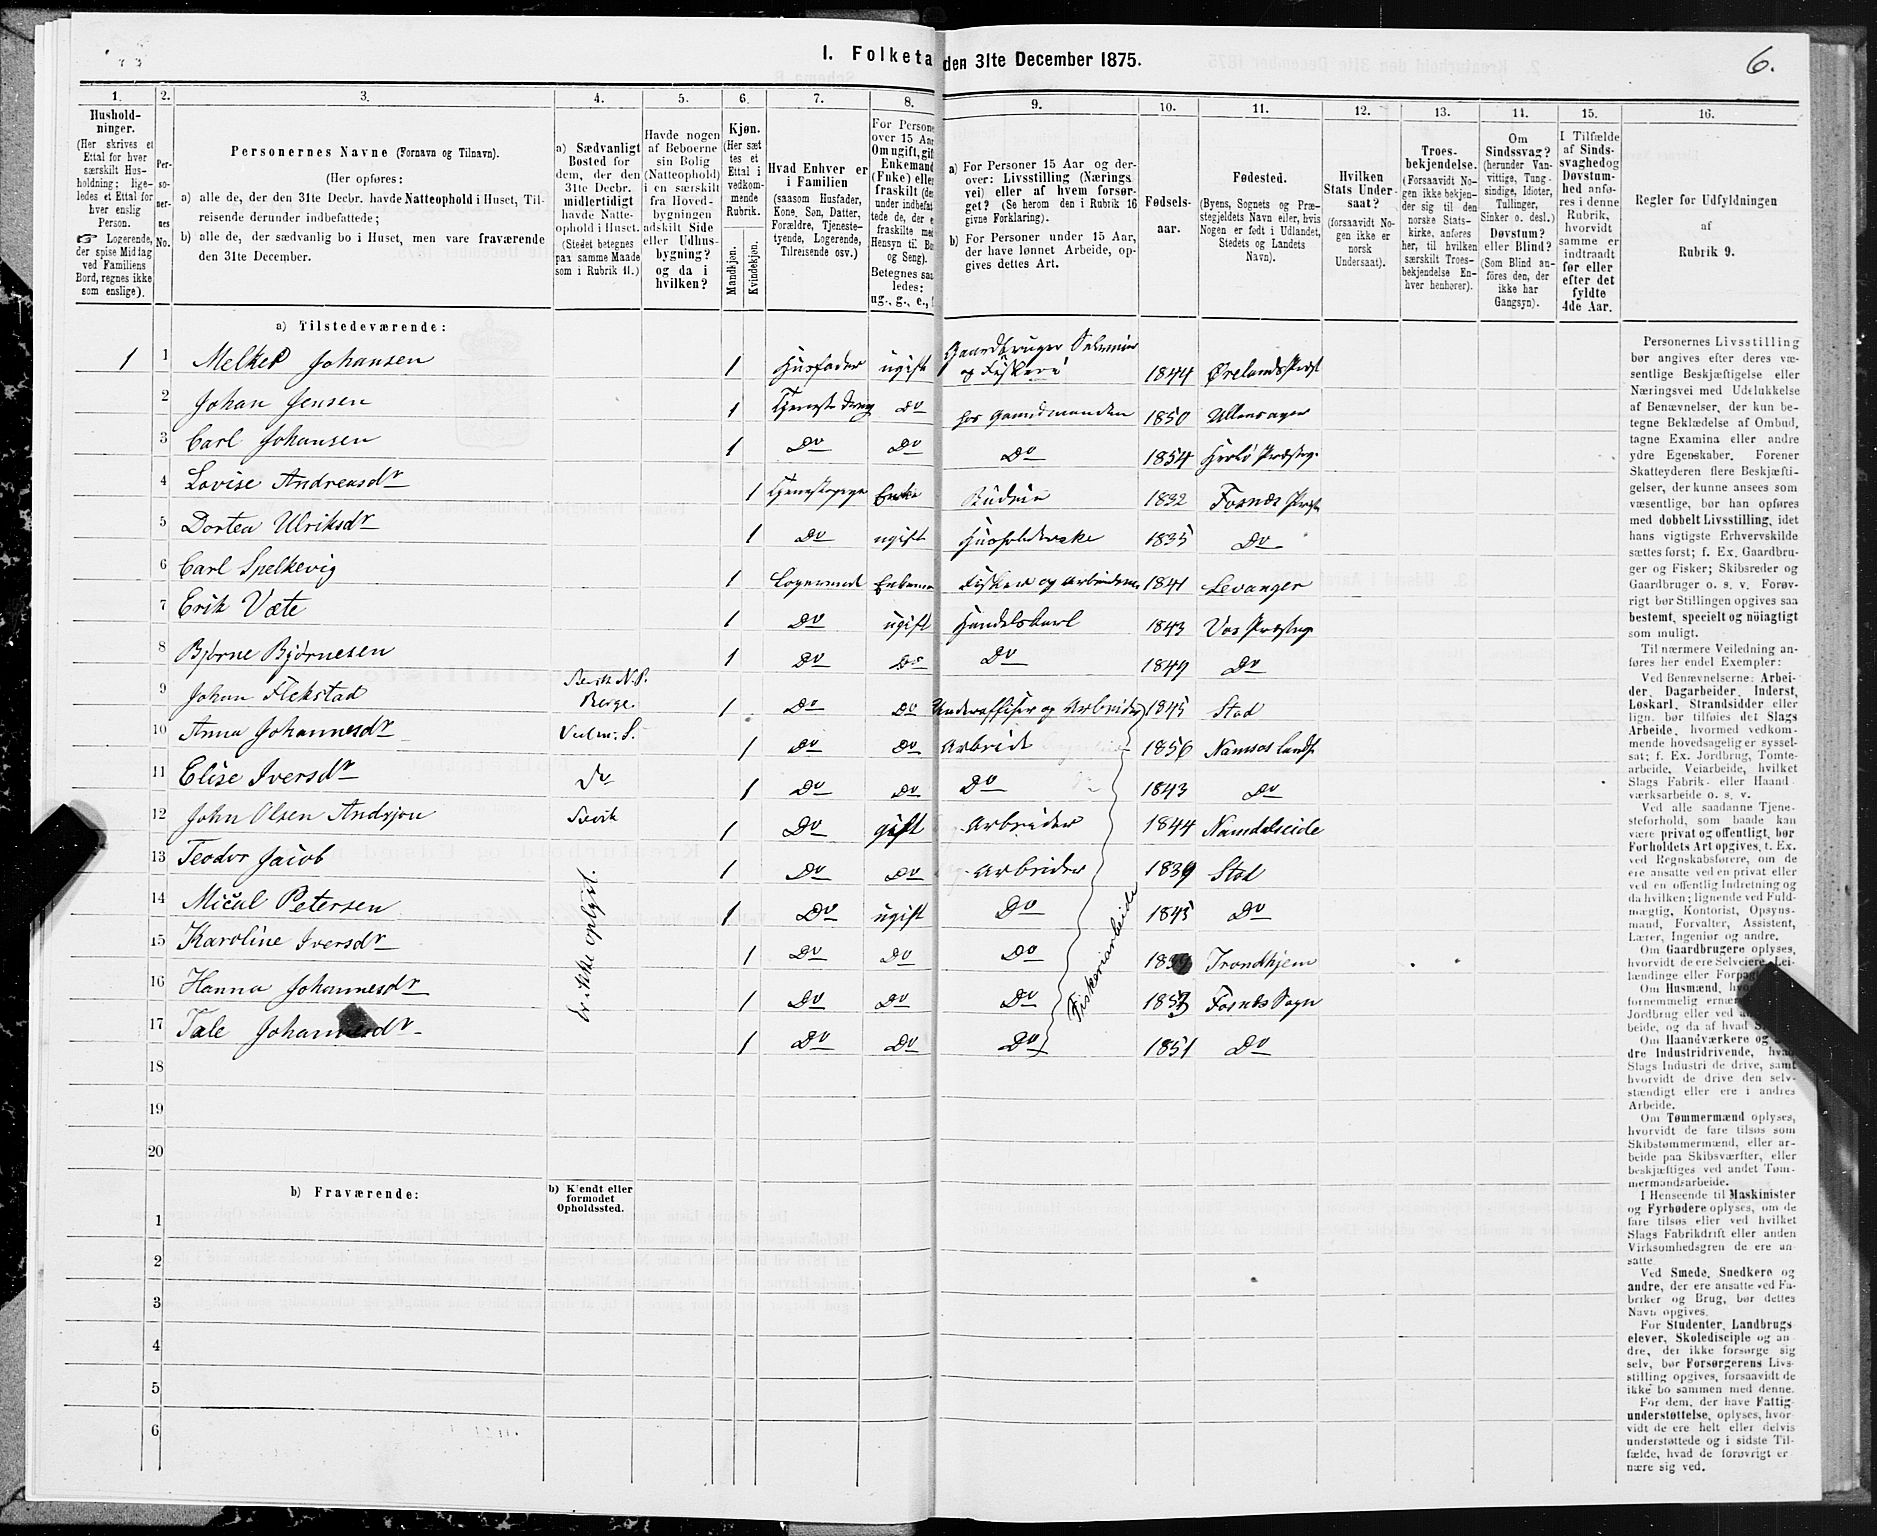 I. Folketa den 31te December 1875.
6.
1. 2. 3. 4. 5. 6. 7. 8. 9. 10. 11. 12. 13. 14. 15. 16.
Hushold-
ninger.
(Her skrives et
Ettal for hver
særskilt Hus-
holdning; lige-
ledes et Ettal for
hver enslig
Person.
☞ Logerende,
der spise Middag
ved Familiens
Bord, regnes ikke
som enslige).
Per-
so-
ner-
nes
No.
Personernes Navne (Fornavn og Tilnavn).
(Her opføres:
a) alle de, der den 31te Decbr. havde Natteophold i Huset, Til-
reisende derunder indbefattede;
b) alle de, der sædvanlig bo i Huset, men vare fraværende
den 31te December.
a) Sædvanligt
Bosted for
dem, der den
31te Decbr.
midlertidigt
havde Natte-
ophold i Huset.
(Stedet betegnes
paa samme Maade
som i Rubrik 11.)
Havde nogen
af Beboerne
sin Bolig
(Natteophold)
i en særskilt
fra Hoved-
bygningen
adskilt Side
eller Udhus-
bygning?
og da i
hvilken?
Kjøn.
(Her sæt
tes et
Ettal i
vedkom-
mende
Rubrik.
Mandkjøn.
Kvindekjøn.
Hvad Enhver er
i Familien
(saasom Husfader,
Kone, Søn, Datter,
Forældre, Tjeneste-
tyende, Logerende,
Tilreisende osv.)
For Persone
over 15 Aar
Om ugift, gift
Enkemand
(Enke) eller
fraskilt (de
under indbefat
tede de, der e
fraskilte med
Hensyn til Bo
og Seng).
Betegnes saa
ledes:
ug., g., e.,
a) For Personer 15 Aar og der-
over: Livsstilling (Nærings
vei) eller af hvem forsør-
get? (Se herom den i Rubrik 16
givne Forklaring).
b) For Personer under 15 Aar,
der have lønnet Arbeide, op-
gives dettes Art.
Fødsels-
aar.
Fødested.
(Byens, Sognets og Præ-
stegjeldets Navn eller, hvis
Nogen er født i Udlandet,
Stedets og Landets
Navn).
Hvilken
Stats Under-
saat?
(forsaavidt No-
gen ikke er
norsk
Undersaat).
Troes-
bekjendelse.
(Forsaavidt No-
gen ikke bekjen-
der sig til den
norske Stats-
kirke, anføres
her, til hvilken
særskilt Troes-
bekjendelse En-
hver henhører).
Om
Sindssvag?
(herunder Van-
vittige, Tung-
sindige, Idioter,
Tullinger,
Sinker o. desl.)
Døvstum?
eller Blind?
(Som Blind an-
føres den, der
ikke har
Gangsyn).
I Tilfælde
af Sinds-
svaghed og
Døvstum-
hed anfø-
res i denne
Rubrik,
hvorvidt
samme er
indtraadt
før eller
efter det
fyldte
4de Aar.
Regler for Udfyldningen
af
Rubrik 9.
a) Tilstedeværende:
1 1 Melker Johansen 1 Husfader ugift Gaardbruger Selveier og Fiskeri 1844 Ørelands Præst
2 Johan Jensen 1 Tjeneste dreng Do hos Gaardmanden 1850 Ullensager
3 Carl Johansen 1 Do Do Do 1854 Præsteg.
4 Lovise Andreasdr 1 Tjenestepige Enke Budeie 1832 Fosnæs Præst
5 Dortea Ulriksdr 1 Do ugift Husholderske 1835 Do
6 Carl Spelkevig 1 Logerende Enkeman Fisker og Arbeider 1841 Levanger
7 Erik Væte 1 Do ugift Handelskarl 1843 Vos Præsteg
8 Bjørne Bjørnesen 1 Do Do Do 1849 Do
9 Johan Flekstad 1 Do Do Underoffiser og Arbeider 1845 Stod
10 Anna Johannesdr 1 Do Do Arbeide 1856 Namsos Lands
11 Elise Iversdr Do 1 Do Do Do 1843 Do
12 John Olsen Andsjøn 1 Do gift Arbeider 1844 Namdalseide
13 Teodor Jacob 1 Do Do Arbeider 1839 Stod
14 Mical Petersen 1 Do ugift Do 1845 Do
15 Karoline Iversdr 1 Do Do Do Trondhjem
16 Hanna Johannesdr 1 Do Do Do 1853 Fosnæs Sogn
17 Tale Johannesdr 1 Do Do Do 1851 Do
Er ikke oplyst.
Fiskeriarbeide
18
19
20
b) Fraværende:
b) Kjendt eller
formodet
Opholdssted.
1
2
3
4
5
6
Personernes Livsstilling
bør angives efter deres væ-
sentlige Beskjæftigelse eller
Næringsvei med Udelukkelse
af Benævnelser, der kun be-
tegne Beklædelse af Ombud,
tagne Examina eller andre
ydre Egenskaber. Forener
Skatteyderen flere Beskjæfti-
gelser, der kunne ansees som
væsentlige, bør han opføres
med dobbelt Livsstilling, idet
hans vigtigste Erhvervskilde
sættes først; f. Ex. Gaardbru-
ger og Fisker; Skibsreder og
Gaardbruger o. s. v. Forøv-
rigt bør Stillingen opgives saa
bestemt, specielt og nöiagtigt
som muligt.
Til nærmere Veiledning an-
føres her endel Exempler:
Ved Benævnelserne: Arbei-
der, Dagarbeider, Inderst,
Løskarl, Strandsidder eller
lign. bør tilføies det Slags
Arbeide, hvormed vedkom-
mende hovedsagelig er syssel-
sat; f. Ex. Jordbrug, Tomte-
arbeide, Veiarbeide, hvilket
Slags Fabrik- eller Haand-
værksarbeide o. s. v.
Ved alle saadanne Tjene-
steforhold, som baade kan
være privat og offentligt, bør
Forholdets Art opgives, t. Ex.
ved Regnskabsførere, om de
ere ansatte ved en privat eller
ved en offentlig Indretning og
da hvilken; lignende ved Fuld-
mægtig, Kontorist, Opsyns-
mand, Forvalter, Assistent,
Lærer, Ingeniør og andre.
Om Gaardbrugere oplyses,
hvorvidt de ere Selveiere, Lei-
lændinge eller
Om Husmænd,
fornemmelig
Jordbrug eller ved
beide, og da af hvad
Om Haandværkere og
dre Industridrivende, hvad
Slags Industri de drive, samt
hvorvidt de drive den selv-
stændigt eller ere i andres
Arbeide.
Om Tømmermænd oplyses,
hvorvidt de fare tilsøs som
Skibstømmermænd, eller ar-
beide paa Skibsværfter, eller
beskjæftiges ved andet Tøm-
mermandsarbeide.
I Henseende til Maskinister
og Fyrbødere oplyses, om de
fare tilsøs eller ved hvilket
Slags Fabrikdrift eller anden
Virksomhedsgren de ere an-
satte
Ved Smede, Snedkere og
andre, der ere ansatte ved Fa-
briker og Brug, bør dettes
Navn opgives.
For Studenter, Landbrugs-
elever, Skoledisciple og an-
dre, der ikke forsørge sig
selv, bør Forsørgerens Livs-
stilling opgives, forsaavidt de
ikke bo sammen med denne.
For dem, der have Fattig-
understøttelse, oplyses, hvor-
vidt de ere helt eller delvis
understøttede og i sidste Til-
fælde, hvad de forøvrigt er-
nære sig ved.